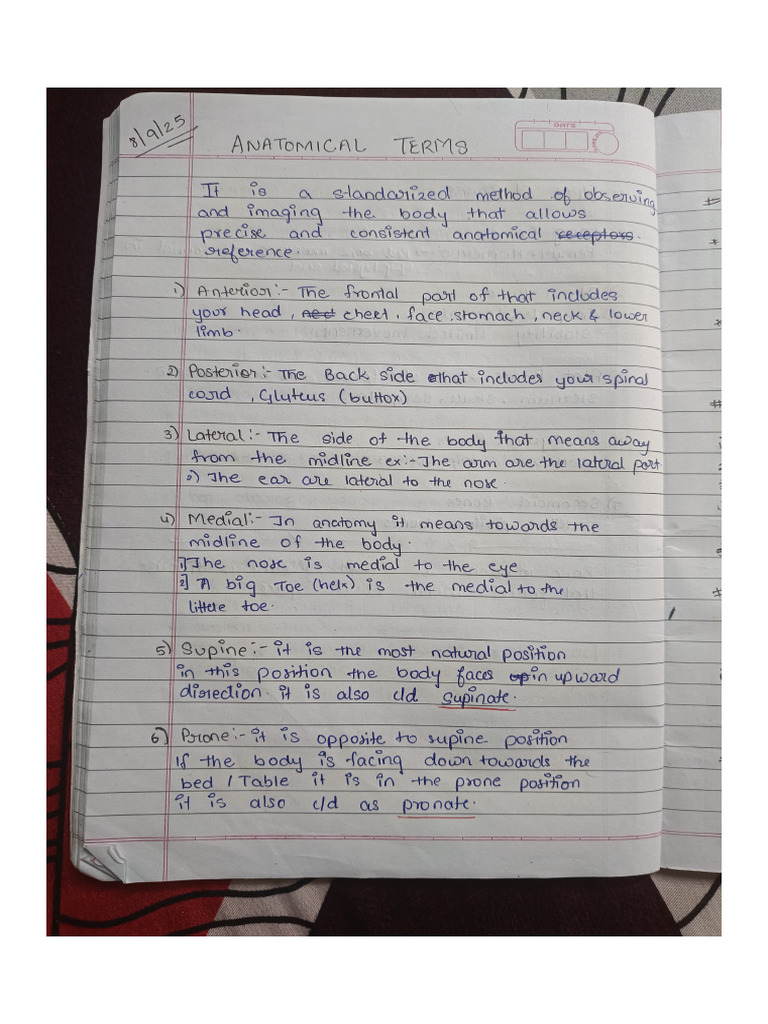 8/9/25
ANATOMICAL TERMS
DATE
It is a standarized method of observing
and imaging the body that allows
precise and consistent anatomical receptors.
reference.
1) Anterior:- The frontal part of that includes
your head, nect cheet, face, stomach, neck & lower
limb.
2) Posterior:- The Back side that includes your spinal
cord, Gluteus (buttox)
3) Lateral:- The side of the body that means away
from the midline ex:- The arm are the lateral part
2) The ear are lateral to the nose.
4) Medial:- In anatomy it means towards the
midline of the body.
1] The nose is medial to the eye
2] A big Toe (helx) is the medial to the
little toe.
5) Supine:- it is the most natural position
in this position the body faces up in upward
direction. it is also c/d supinate.
6) Prone:- it is opposite to supine position
If the body is facing down towards the
bed / Table it is in the prone position
it is also c/d as pronate.